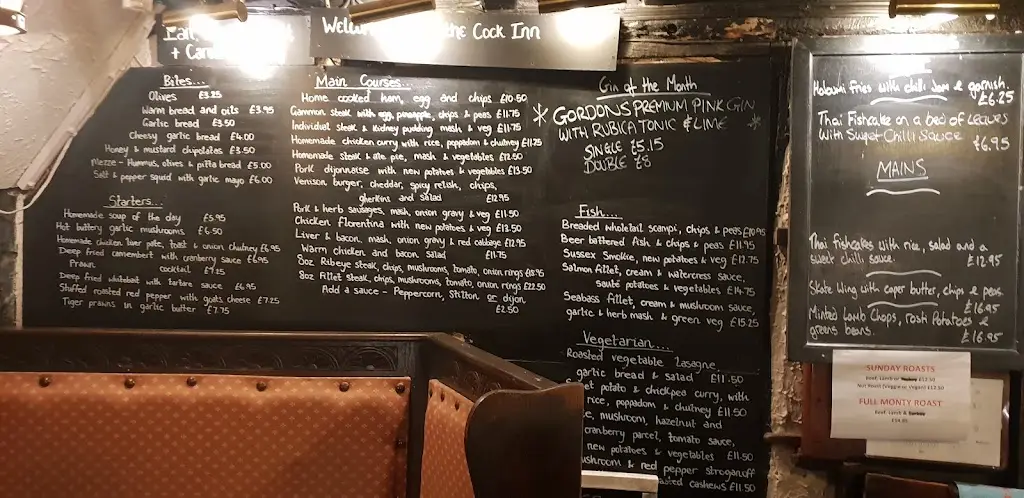 Welcome the Cock Inn
Bites...
Olives £3.25
Warm bread and oils £3.95
Garlic bread £3.50
Cheesy garlic bread £4.00
Honey & mustard chipolatas £3.50
Mezze - Hummus, olives & pitta bread £5.00
Salt & pepper squid with garlic mayo £6.00
Starters...
Homemade soup of the day £5.95
Hot buttery garlic mushrooms £6.50
Homemade chicken liver pate, toast & onion chutney £6.95
Deep fried camembert with cranberry sauce £6.95
Prawn cocktail £7.25
Deep fried whitebait with tartare sauce £6.95
Stuffed roasted red pepper with goats cheese £7.25
Tiger prawns in garlic butter £7.75
Main Courses...
Home cooked ham, egg and chips £10.50
Gammon steak with egg, pineapple, chips & peas £11.75
Individual steak & kidney pudding mash & veg £11.75
Homemade chicken curry with rice, poppadom & chutney £11.25
Homemade steak & ale pie, mash & vegetables £12.50
Pork dijonnaise with new potatoes & vegetables £13.50
Venison burger, cheddar, spicy relish, chips,
gherkins and salad £12.95
Pork & herb sausages, mash, onion gravy & veg £11.50
Chicken Florentina with new potatoes & veg £13.50
Liver & bacon, mash, onion gravy & red cabbage £12.95
Warm chicken and bacon salad £11.75
8oz Ribeye steak, chips, mushrooms, tomato, onion rings
8oz Fillet steak, chips, mushrooms, tomato, onion rings £22.50
Add a sauce - Peppercorn, Stilton or dijon
£2.50
Gin of the Month
* GORDONS PREMIUM PINK GIN *
WITH RUBICA TONIC & LIME
SINGLE £5.15
DOUBLE £8
Fish...
Breaded wholetail scampi, chips & peas £10.95
Beer battered fish & chips & peas £11.95
Sussex Smokie, new potatoes & veg £12.75
Salmon fillet, cream & watercress sauce,
sauté potatoes & vegetables £14.75
Seabass fillet, cream & mushroom sauce,
garlic & herb mash & green veg £15.25
Vegetarian....
Roasted vegetable lasagne,
garlic bread & salad £11.50
potato & chickpea curry, with
rice, poppadom & chutney £11.50
mushroom, hazelnut and
cranberry parcel, tomato sauce,
new potatoes & vegetables £11.50
& red pepper stroganoff
cashews £11.50
Haloumi Fries with chilli Jam & garnish.
£6.25
Thai Fishcake on a bed of Leaves
with Sweet Chilli Sauce
£6.95
MAINS
Thai fishcakes with rice, salad and a
sweet chilli sauce. £12.95
Skate Wing with caper butter, chips & peas.
£16.95
Minted Lamb Chops, rost Potatoes &
greens beans. £16.95
SUNDAY ROASTS
Beef, Lamb or £12.50
Nut Roast (Veggie or Vegan) £12.50
FULL MONTY ROAST
Beef, Lamb &